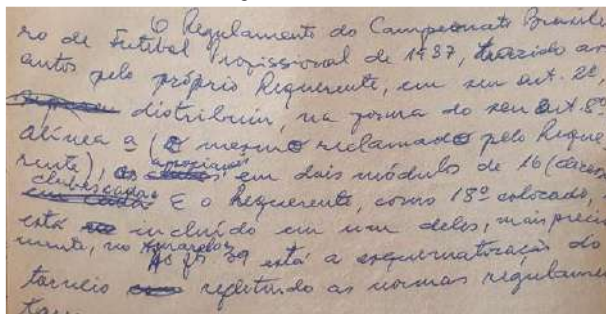 O Regulamento do Campeonato Brasilei
ro de Futebol Profissional de 1987, trazido aos
autos pelo próprio Requerente, em seu art. 2º,
distribuiu, na forma do seu art. 8º
alínea a (o mesmo reclamado pelo Reque
rente), os associados em dois módulos de 16 (dezes
clubes cada. E o Requerente, como 18º colocado,
está incluído em um deles, mais preci
mente, no Amarelo.
Às fls 39 está a esquematização do
torneio refletindo as normas regulamen